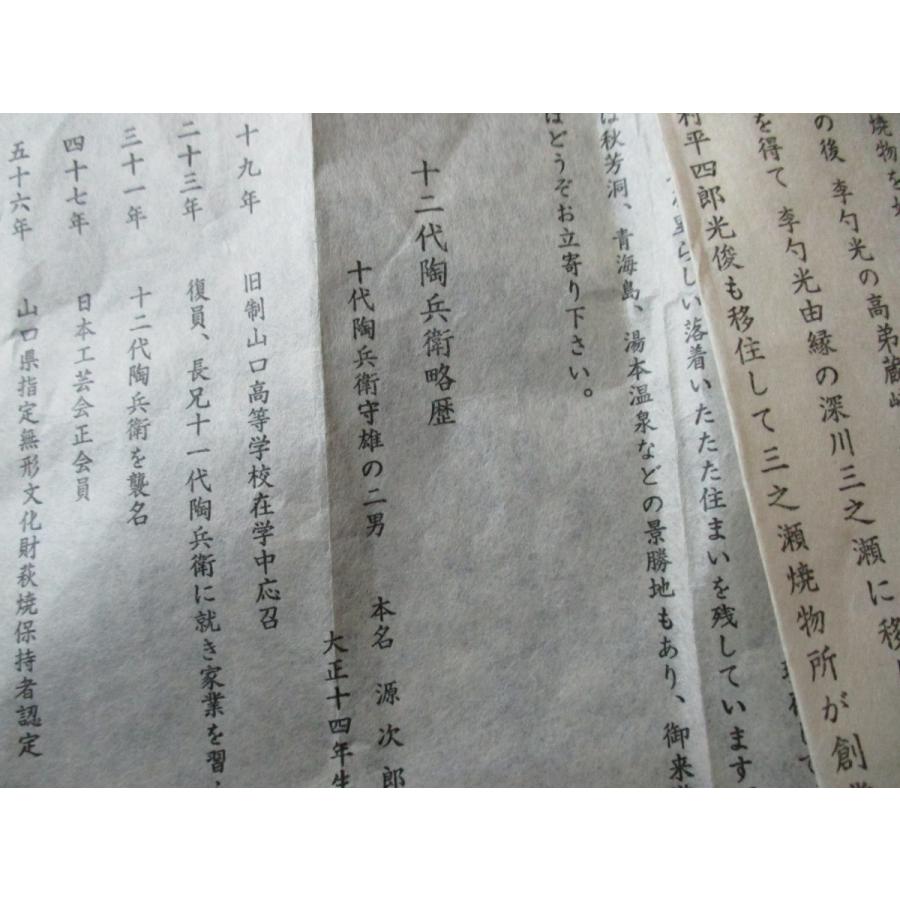 焼物を
の後 李勺光の高弟蔵崎
李勺光由縁の深川三之瀬に移
を得て
村平四郎光俊も移住して三之瀬焼物所が創
らしい落着いたたた住まいを残しています
は秋芳洞、青海島、湯本温泉などの景勝地もあり、御来
はどうぞお立寄り下さい。
十二代陶兵衛略歴
十代陶兵衛守雄の二男 本名 源次郎
大正十四年生
十九年 旧制山口高等学校在学中応召
二十三年 復員、長兄十一代陶兵衛に就き家業を習
三十一年 十二代陶兵衛を襲名
四十七年 日本工芸会正会員
五十六年 山口県指定無形文化財萩焼保持者認定